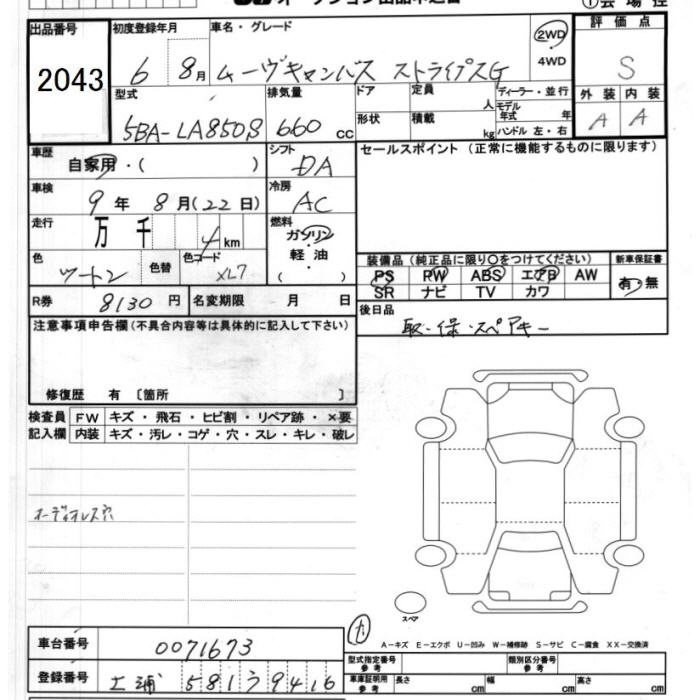 出品番号 2043
初度登録年月 6 年 8 月
車名・グレード ムーヴキャンバス ストライプスG
2WD
4WD
評価点 S
外装 A 内装 A
型式 5BA-LA850S
排気量 660 cc
ドア
形状
定員 人
積載 kg
ディーラー・並行
モデル年式 年
ハンドル 左・右
車歴 自家用・( )
シフト DA
車検 9 年 8 月 (22 日)
冷房 AC
走行 万 千 4 km
燃料 ガソリン・軽油・( )
色 ツートン
色替
色コード XL7
R券 8130 円
名変期限 月 日
セールスポイント(正常に機能するものに限ります)
装備品(純正品に限り○をつけてください)
新車保証書
PS PW ABS エアB AW
有・無
SR ナビ TV カワ
後日品 取・保・スペアキー
注意事項申告欄(不具合内容等は具体的に記入して下さい)
修復歴 有 [箇所 ]
検査員記入欄
FW キズ・飛石・ヒビ割・リペア跡・×要
内装 キズ・汚レ・コゲ・穴・スレ・キレ・破レ
オーディオレス穴
スペア
カ
A-キズ E-エクボ U-凹み W-補修跡 S-サビ C-腐食 XX-交換済
車台番号 0071673
登録番号 土浦 581 ワ 9416
型式指定番号 参考
類別区分番号 参考
車庫証明用 参考 長さ cm 幅 cm 高さ cm